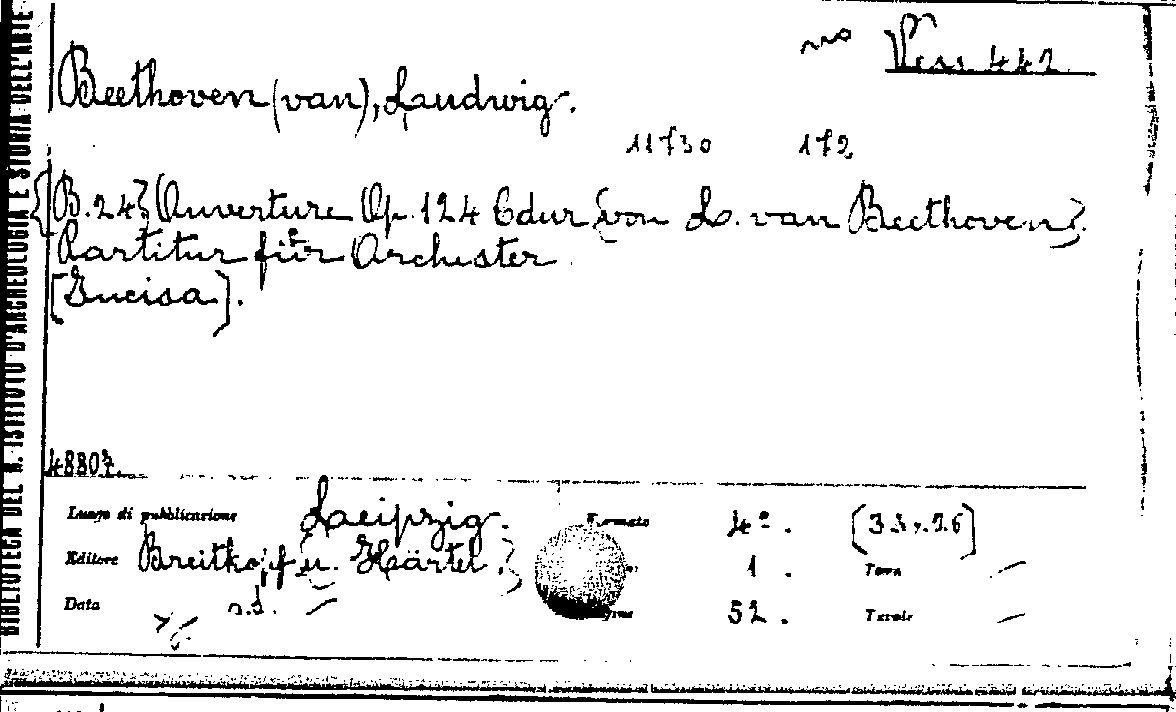 BIBLIOTECA DEL R. ISTITUTO D'ARCHEOLOGIA E STORIA DELL'ARTE
Vess 442
Beethoven (van), Ludwig.
11730 172
{B.24} Ouverture Op. 124 Cdur {von L. van Beethoven}.
Partitur für Orchester
[Incisa].
48807.
Luogo di pubblicazione Leipzig. Formato 4º. (33x26)
Editore Breitkopf {u. Härtel.} 1. Tavn —
Data s.d. — 52. Tavole —